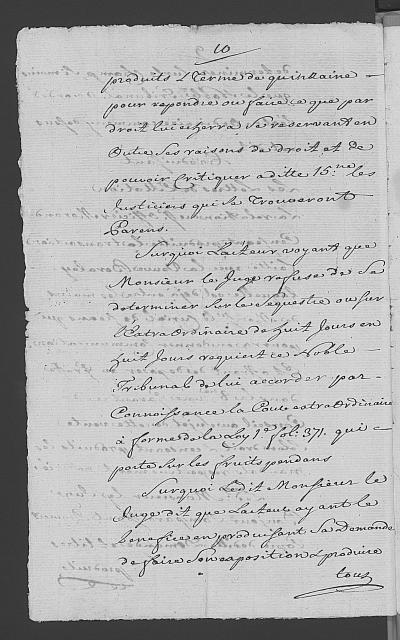 10
produits & Terme de quinzaine
pour repondre ou faire ce que par
droit lui echerra Se reservant en
Outre ses raisons de droit et de
pouvoir Critiquer a ditte 15.ne les
Justiciers qui se Trouveront
Parens.
Surquoi Lacteur voyant que
Monsieur le Juge refuse de Se
determiner Sur le Sequestre ou sur
Lextra Ordinaire de huit Jours en
huit Jours requiert ce Noble
Tribunal de lui accorder par
Connoissance la Cour extra Ordinaire
à forme de la Loy 1e fol. 371. qui
porte Sur les fruits pendans
Surquoi Ledit Monsieur le
Juge dit que Lacteur ayant le
benefice en produisant Sa Demande
de faire Son exposition & produire
tous